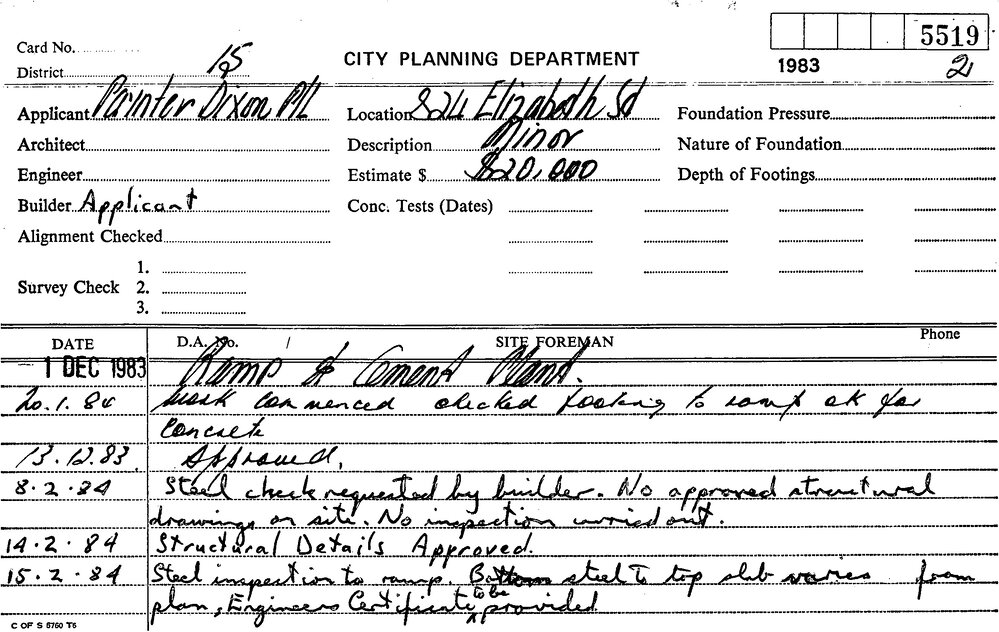 5519
Card No.
District 15
CITY PLANNING DEPARTMENT
1983
2
Applicant Painter Dixon P/L
Location 824 Elizabeth St
Foundation Pressure
Architect
Description Minor
Nature of Foundation
Engineer
Estimate $ $20,000
Depth of Footings
Builder Applicant
Conc. Tests (Dates)
Alignment Checked
Survey Check
1.
2.
3.
DATE
D.A. No. /
SITE FOREMAN
Phone
- 1 DEC 1983 Ramp to Cement Plant.
20.1.84 Work commenced checked footing to ramp ok for
concrete
13.12.83. Approved.
8.2.84 Steel check requested by builder. No approved structural
drawings on site. No inspection carried out.
14.2.84 Structural Details Approved.
15.2.84 Steel inspection to ramp. Bottom steel to top slab varies from
plan, Engineers Certificate to be provided
C OF S 8760 T6